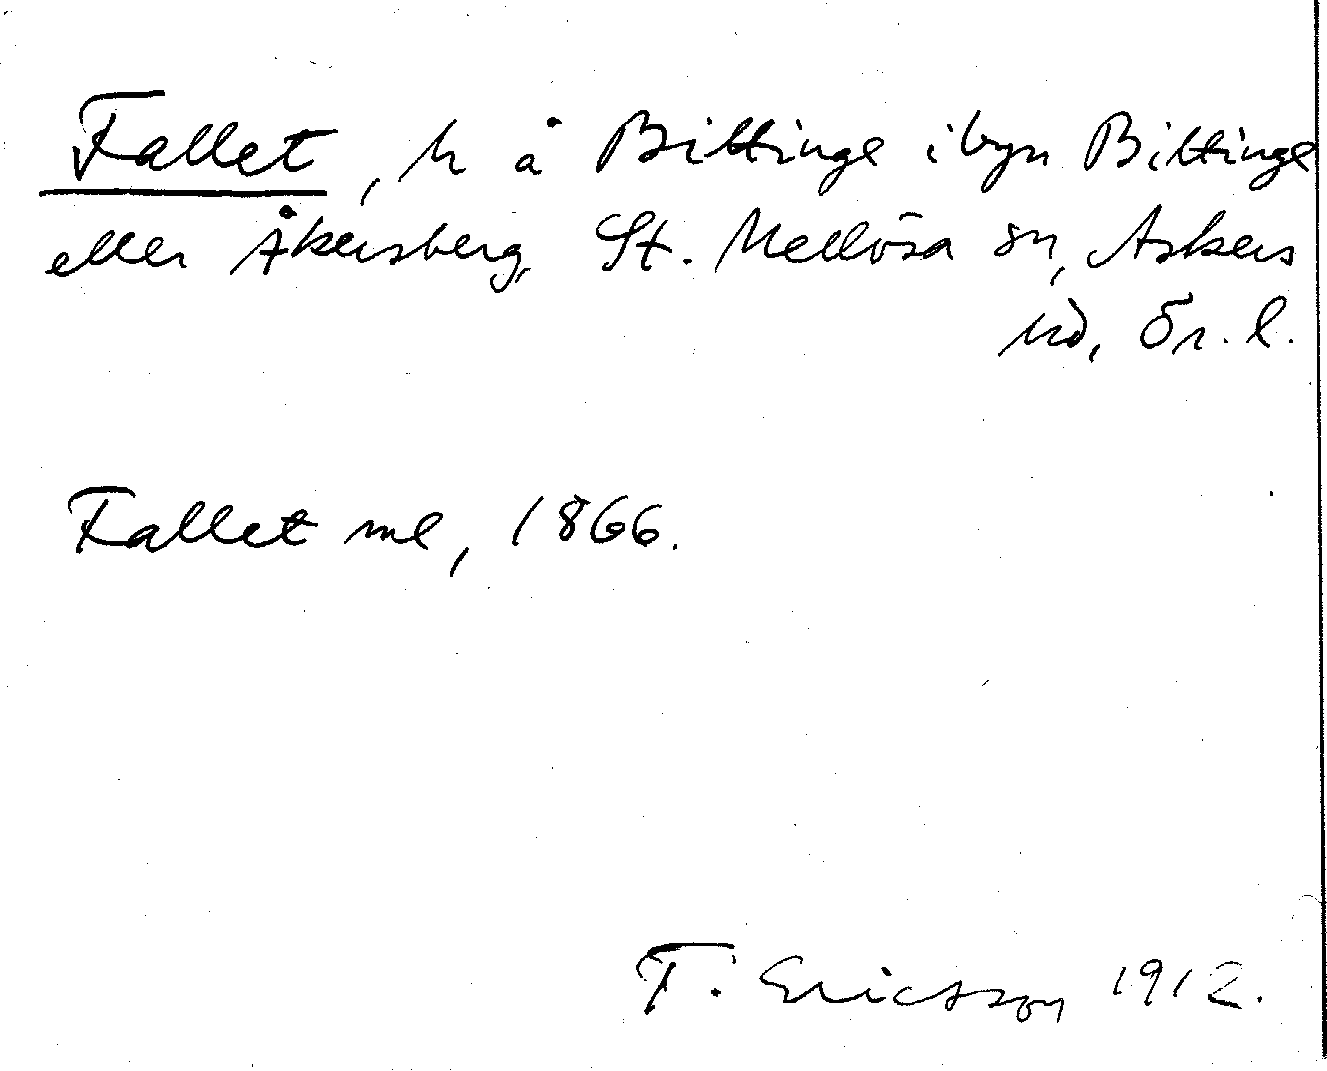 Fallet, h å Bittinge i byn Bittinge
eller Åkersberg, St. Mellösa sn, Askers
hd, Ör. l.
Fallet ml, 1866.
T. Ericsson 1912.